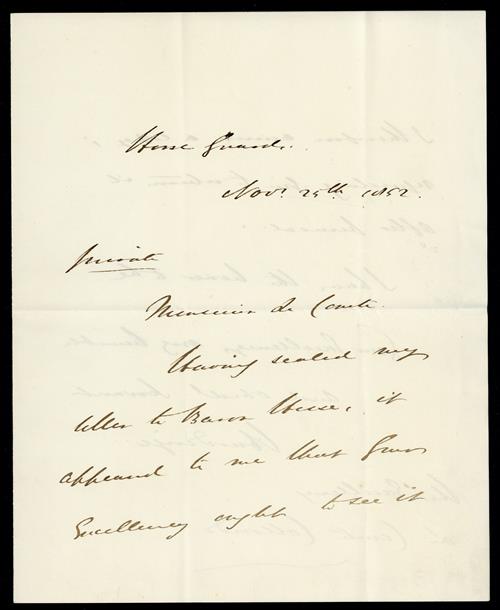 Horse Guards.
Novr. 25th. 1852.
private
Monsieur le Comte.
Having sealed my
letter to Baron Hesse, it
appeared to me that your
Excellency ought to see it